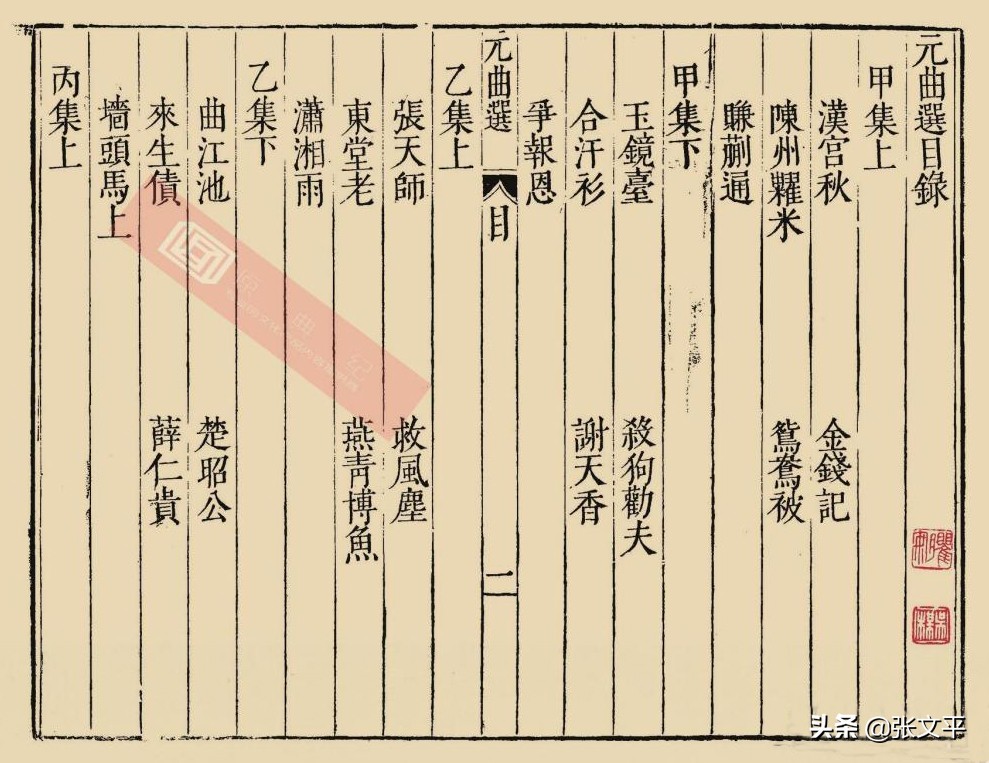 元曲選目錄
甲集上
漢宮秋 金錢記
陳州糶米 鴛鴦被
賺蒯通
甲集下
玉鏡臺 殺狗勸夫
合汗衫 謝天香
爭報恩
元曲選 目 二
乙集上
張天師 救風塵
東堂老 燕靑博魚
瀟湘雨
乙集下
曲江池 楚昭公
來生債 薛仁貴
墻頭馬上
丙集上
头条 @张文平